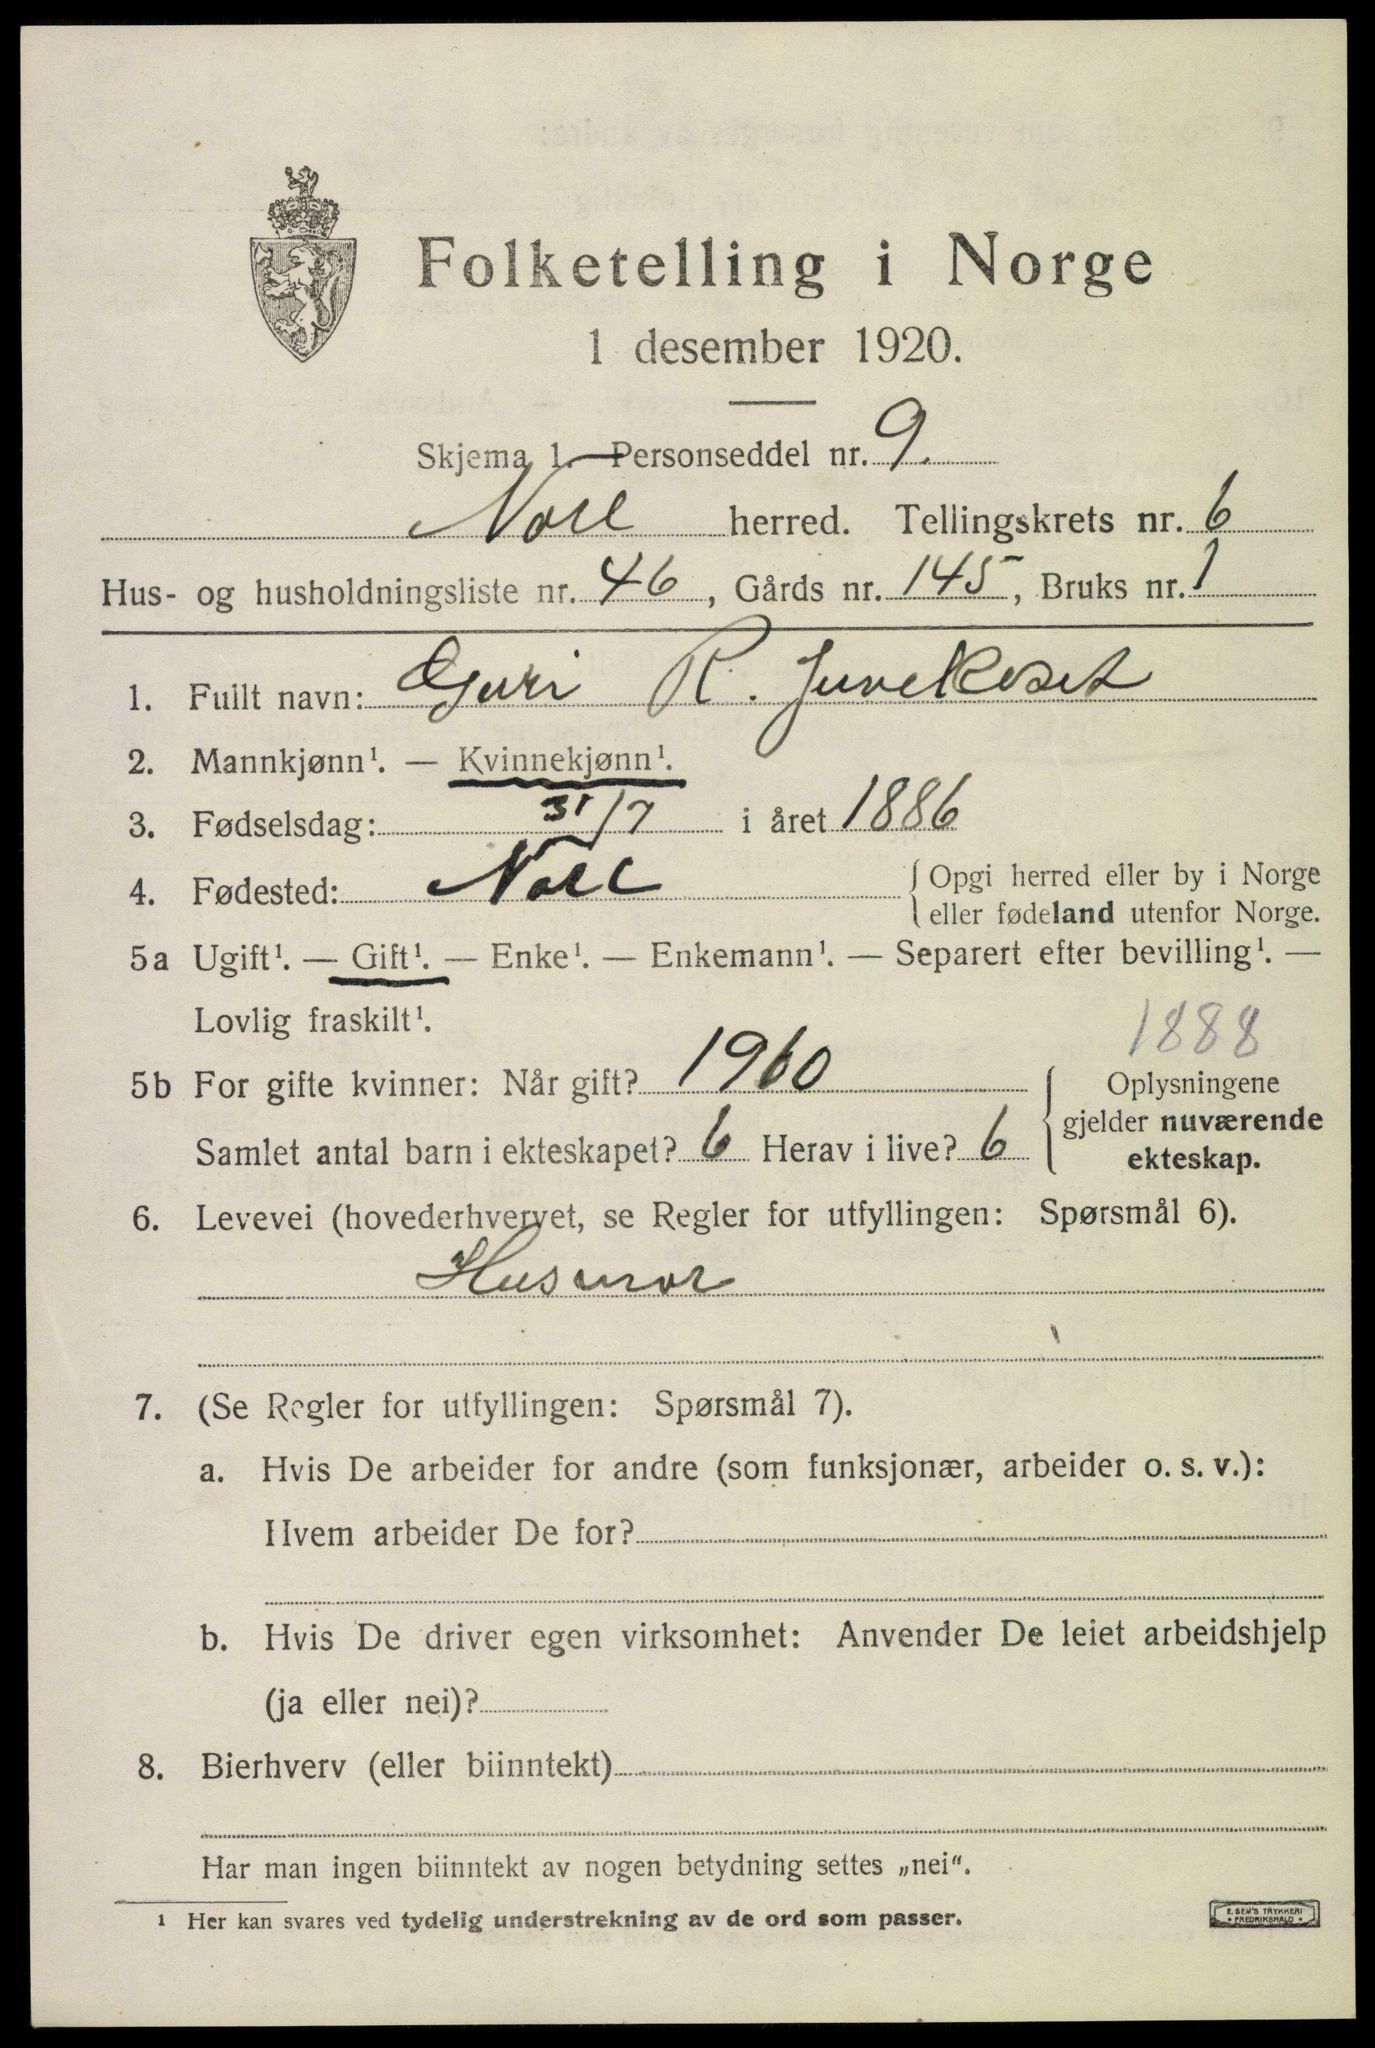 Folketelling i Norge
1 desember 1920.
Skjema 1. Personseddel nr. 9.
Nore herred. Tellingskrets nr. 6
Hus- og husholdningsliste nr. 46, Gårds nr. 145, Bruks nr. 1
1. Fullt navn: Guri R.
2. Mannkjønn¹. — Kvinnekjønn¹.
3. Fødselsdag: 31/7 i året 1886
4. Fødested: Nore { Opgi herred eller by i Norge
eller fødeland utenfor Norge.
5a Ugift¹. — Gift¹. — Enke¹. — Enkemann¹. — Separert efter bevilling¹. —
Lovlig fraskilt¹.
1888
5b For gifte kvinner: Når gift? 1910 { Oplysningene
gjelder nuværende
Samlet antal barn i ekteskapet? 6 Herav i live? 6
ekteskap.
6. Levevei (hovederhvervet, se Regler for utfyllingen: Spørsmål 6).
Husmor
7. (Se Regler for utfyllingen: Spørsmål 7).
a. Hvis De arbeider for andre (som funksjonær, arbeider o. s. v.):
Hvem arbeider De for?
b. Hvis De driver egen virksomhet: Anvender De leiet arbeidshjelp
(ja eller nei)?
8. Bierhverv (eller biinntekt)
Har man ingen biinntekt av nogen betydning settes „nei“.
¹ Her kan svares ved tydelig understrekning av de ord som passer.
E. SEM'S TRYKKERI
• FREDRIKSHALD •